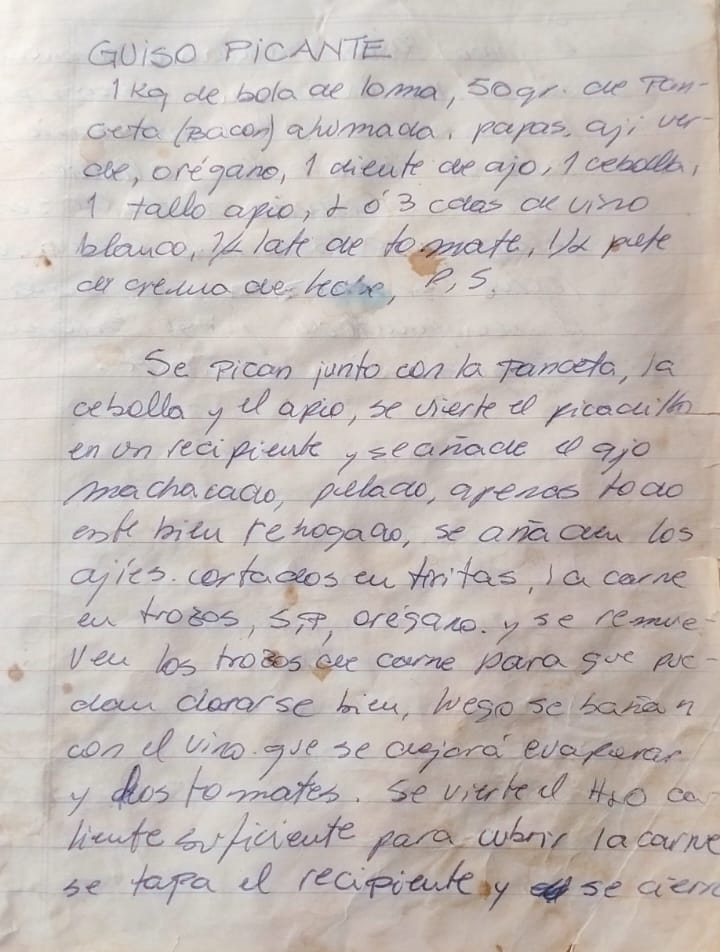 GUISO PICANTE
1 Kg de bola de loma, 50 gr. de Pan-
ceta (Bacon) ahumada. papas. ají ver-
de, orégano, 1 diente de ajo, 1 cebolla,
1 tallo apio, 2 ó 3 cdas de vino
blanco, 1/2 late de tomate, 1/2 pote
de crema de leche, P, S.
Se pican junto con la Panceta, la
cebolla y el apio, se vierte el picadillo
en un recipiente y se añade el ajo
machacado, pelado, apenas todo
este bien rehogado, se añaden los
ajíes. cortados en tiritas, la carne
en trozos, S, P, orégano. y se remue-
ven los trozos de carne para que pue-
dan dorarse bien, luego se bañan
con el vino. que se dejará evaporar
y los tomates. Se vierte el H2O ca-
liente suficiente para cubrir la carne
se tapa el recipiente y se cierra